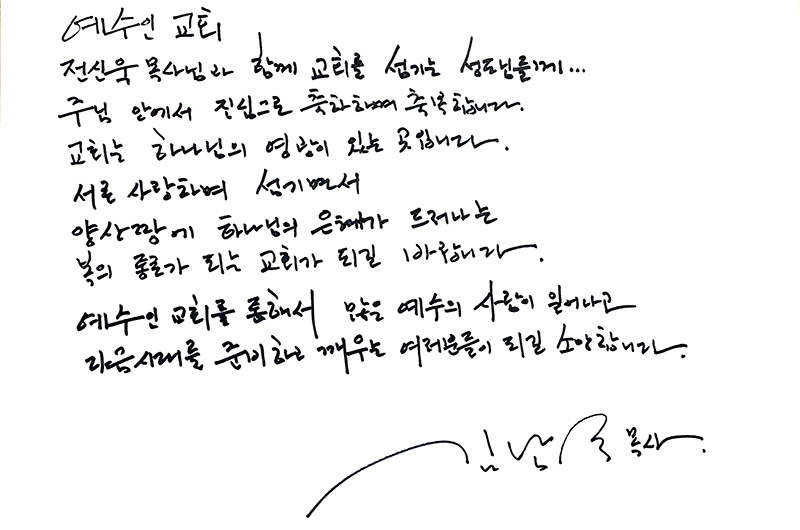 예수인 교회
전신욱 목사님과 함께 교회를 섬기는 성도님들께...
주님 안에서 진심으로 축하하며 축복합니다.
교회는 하나님의 영광이 있는 곳입니다.
서로 사랑하며 섬기면서
양산땅에 하나님의 은혜가 드러나는
복의 통로가 되는 교회가 되길 바랍니다.
예수인 교회를 통해서 많은 예수의 사람이 일어나고
다음시대를 준비하고 깨우는 여러분들이 되길 소망합니다.
김남국 목사.